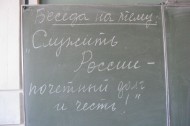 Беседа на тему:
"Служить
России -
почетный долг
и честь!"